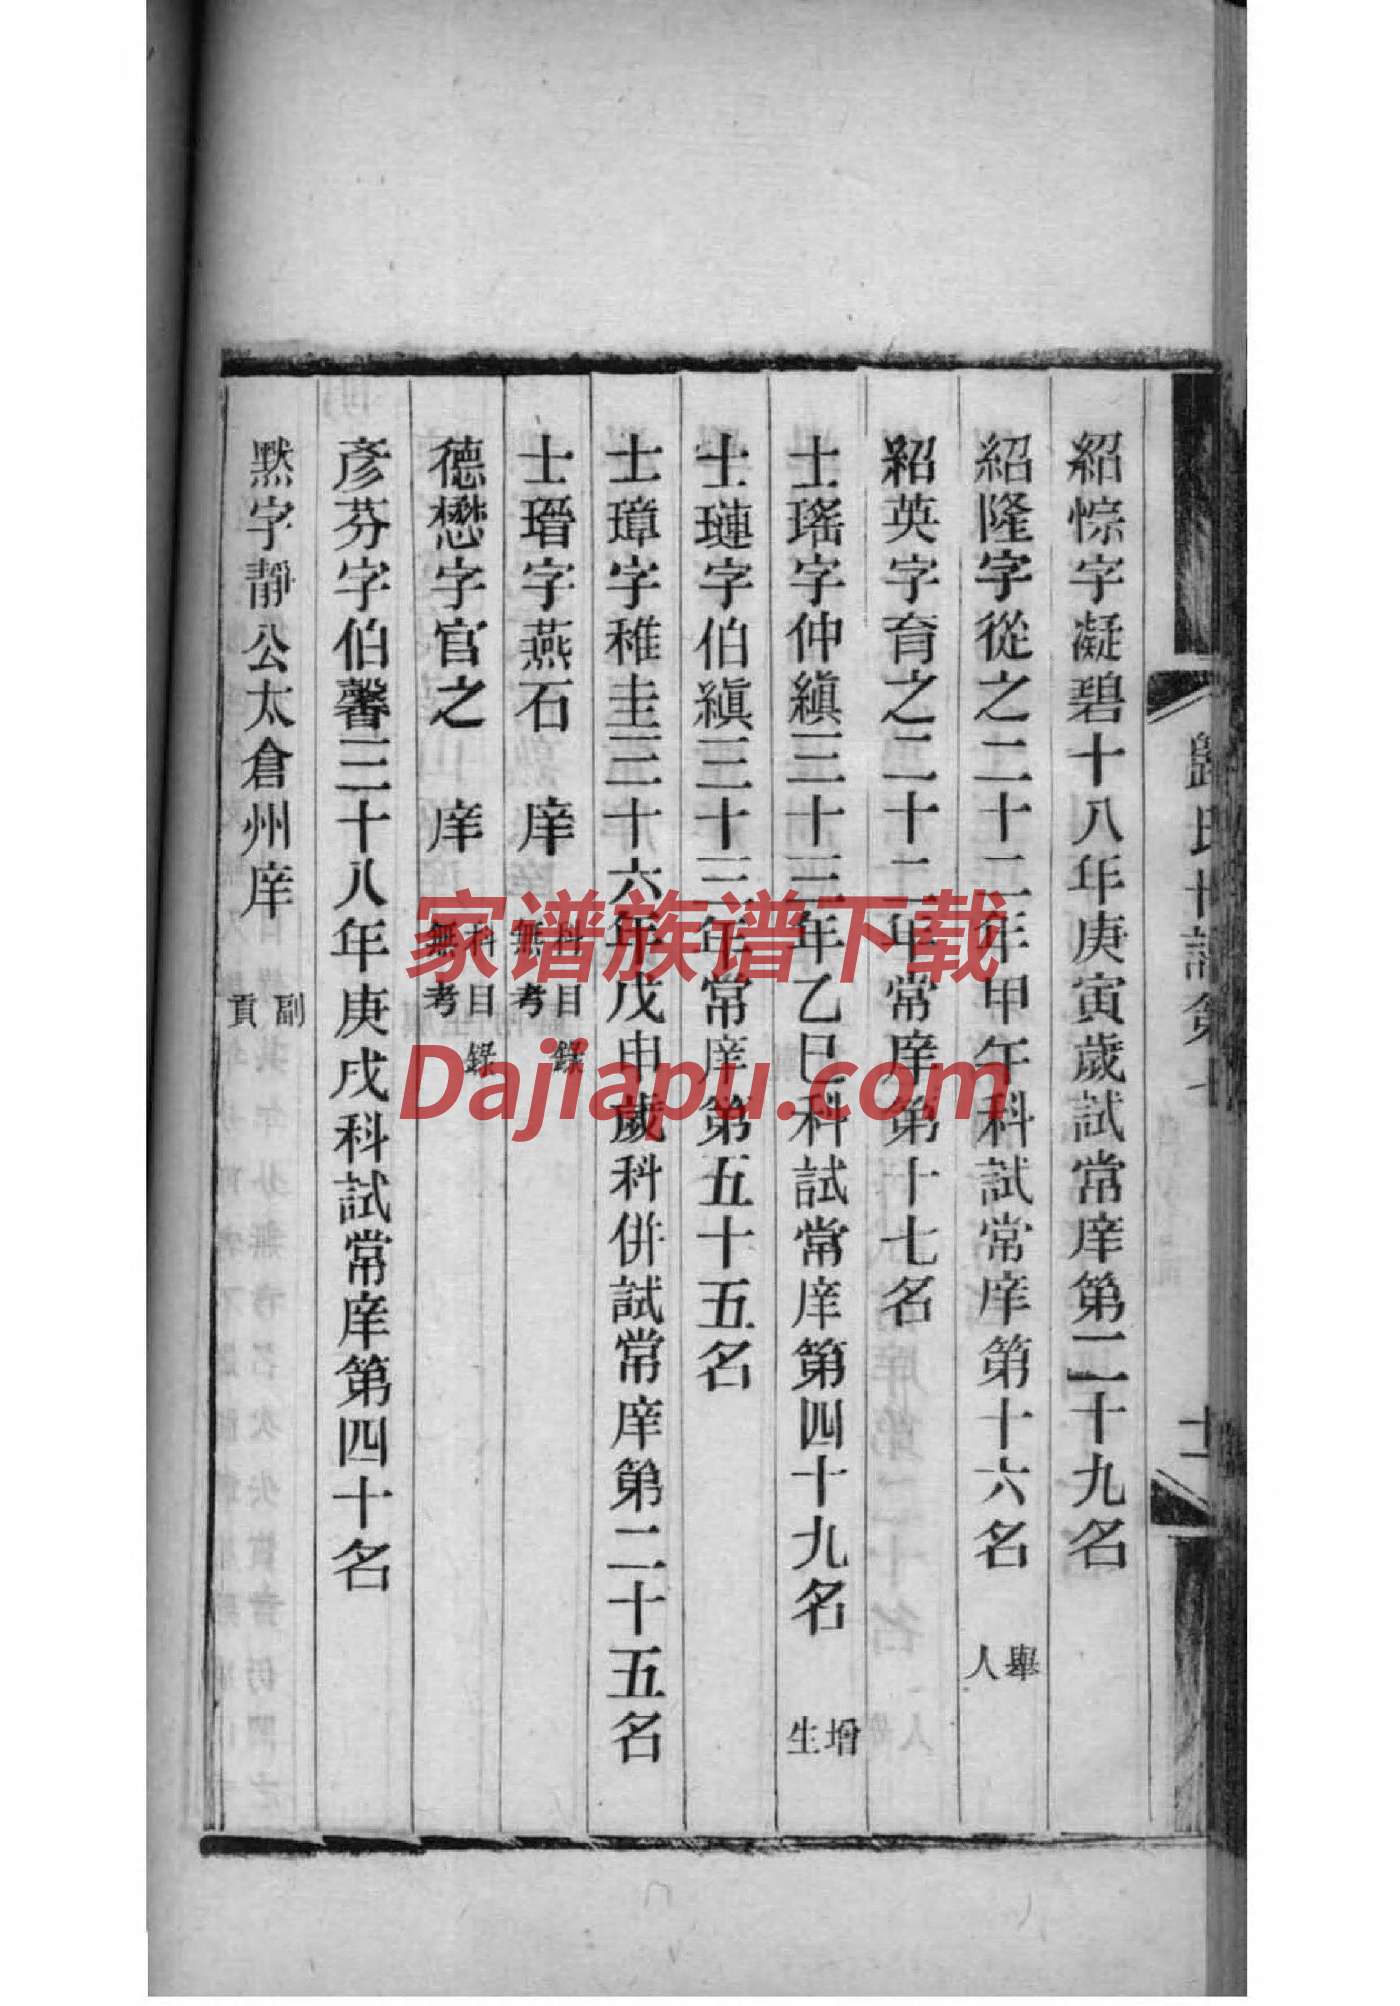 紹悰字凝碧十八年庚寅歲試常庠第二十九名
紹隆字從之二十二年甲午科試常庠第十六名 舉人
紹英字育之二十二年常庠第十七名
士瑤字仲縝三十三年乙巳科試常庠第四十九名 增生
士璉字伯縝三十三年常庠第五十五名
士璋字稚圭三十六年戊申歲科併試常庠第二十五名
士瑨字燕石 庠 科目錄無考
德懋字官之 庠 科目錄無考
彥芬字伯馨三十八年庚戌科試常庠第四十名
默字靜公太倉州庠 副貢
家谱族谱下载
Dajiapu.com